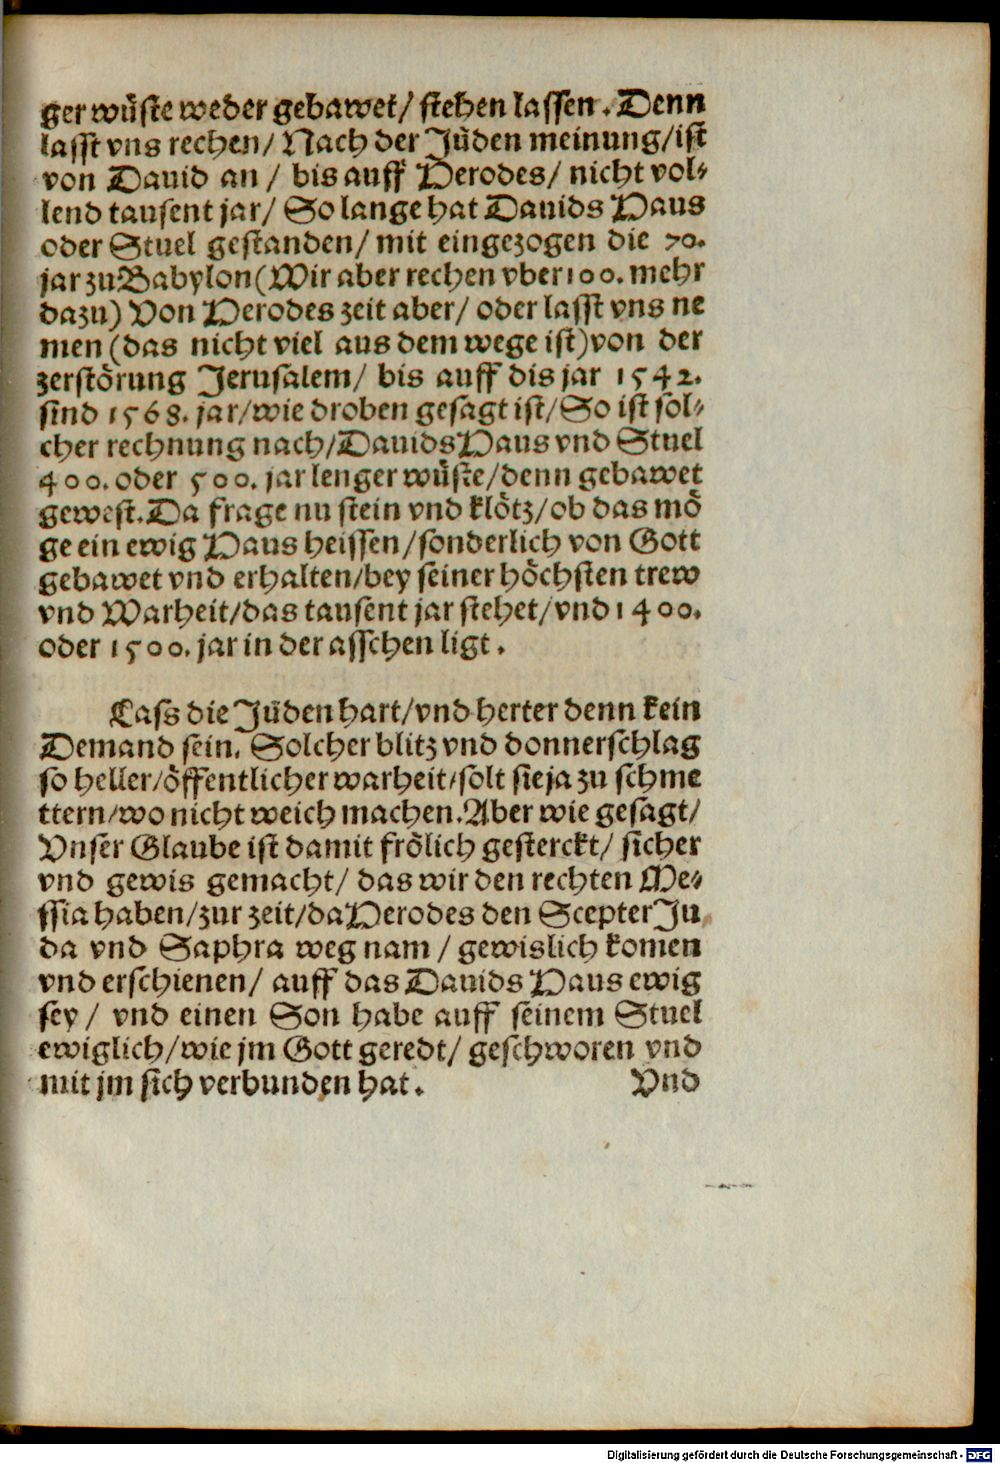 ger wuͤste weder gebawet/ stehen lassen. Denn
lasst vns rechen/ Nach der Juͤden meinung/ist
von Dauid an / bis auff Herodes/ nicht vol-
lend tausent jar/ So lange hat Dauids Haus
oder Stuel gestanden/ mit eingezogen die 70.
jar zu Babylon (Wir aber rechen vber 100. mehr
dazu) Von Herodes zeit aber/ oder lasst vns ne
men (das nicht viel aus dem wege ist) von der
zerstoͤrung Jerusalem/ bis auff dis jar 1542.
sind 1568. jar/wie droben gesagt ist/ So ist sol-
cher rechnung nach/Dauids Haus vnd Stuel
400. oder 500. jar lenger wuͤste/denn gebawet
gewest. Da frage nu stein vnd kloͤtz/ob das moͤ
ge ein ewig Haus heissen/sonderlich von Gott
gebawet vnd erhalten/bey seiner hoͤchsten trew
vnd Warheit/das tausent jar stehet/vnd 1400.
oder 1500. jar in der asschen ligt.
Lass die Juͤden hart/vnd herter denn kein
Demand sein. Solcher blitz vnd donnerschlag
so heller/oͤffentlicher warheit/solt sie ja zu schme
ttern/wo nicht weich machen. Aber wie gesagt/
Vnser Glaube ist damit froͤlich gesterckt/ sicher
vnd gewis gemacht/ das wir den rechten Me-
ssia haben/zur zeit/da Herodes den Scepter Ju
da vnd Saphra weg nam / gewislich komen
vnd erschienen/ auff das Dauids Haus ewig
sey / vnd einen Son habe auff seinem Stuel
ewiglich/wie jm Gott geredt/ geschworen vnd
mit jm sich verbunden hat. Vnd
Digitalisierung gefördert durch die Deutsche Forschungsgemeinschaft - DFG